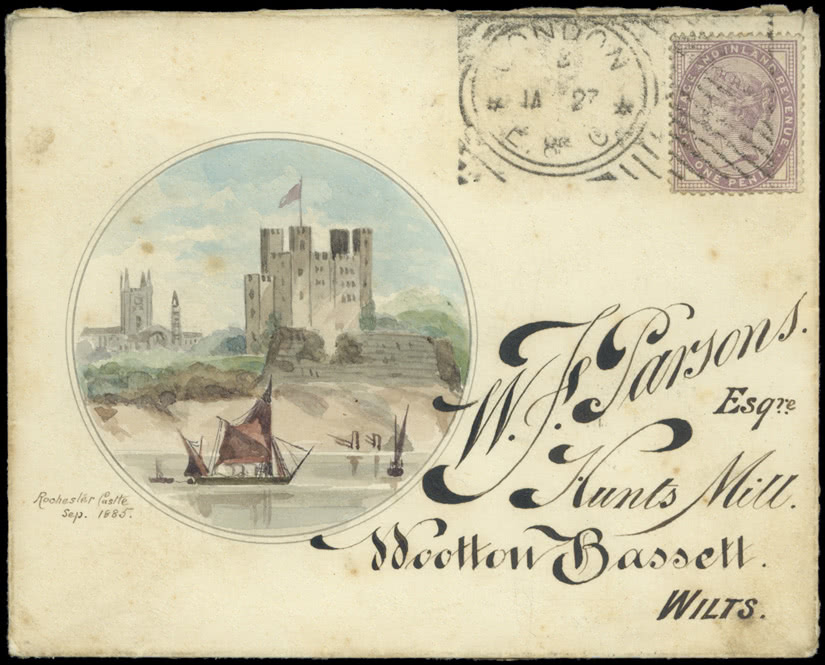 LONDON
JA 27
POSTAGE AND INLAND REVENUE
ONE PENNY
W. F. Parsons.
Esqre
Hunts Mill.
Wootton Bassett.
WILTS.
Rochester Castle
Sep. 1885.